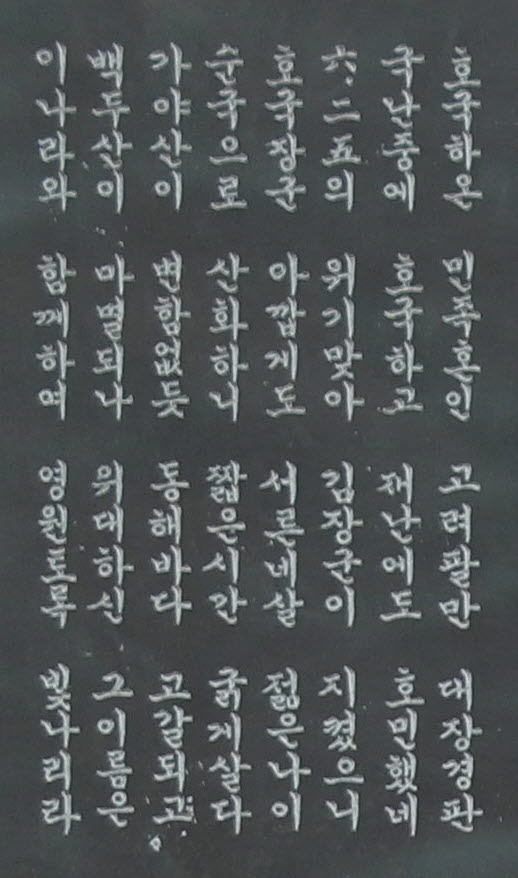 호국하온 민족혼인 고려팔만 대장경판
국난중에 호국하고 재난에도 호민했네
六·二五의 위기맞아 김장군이 지켰으니
호국장군 아깝게도 서른네살 젊은나이
순국으로 산화하니 짧은시간 굵게살다
가야산이 변함없듯 동해바다 고갈되고
백두산이 마멸되나 위대하신 그이름은
이나라와 함께하여 영원토록 빛나리라